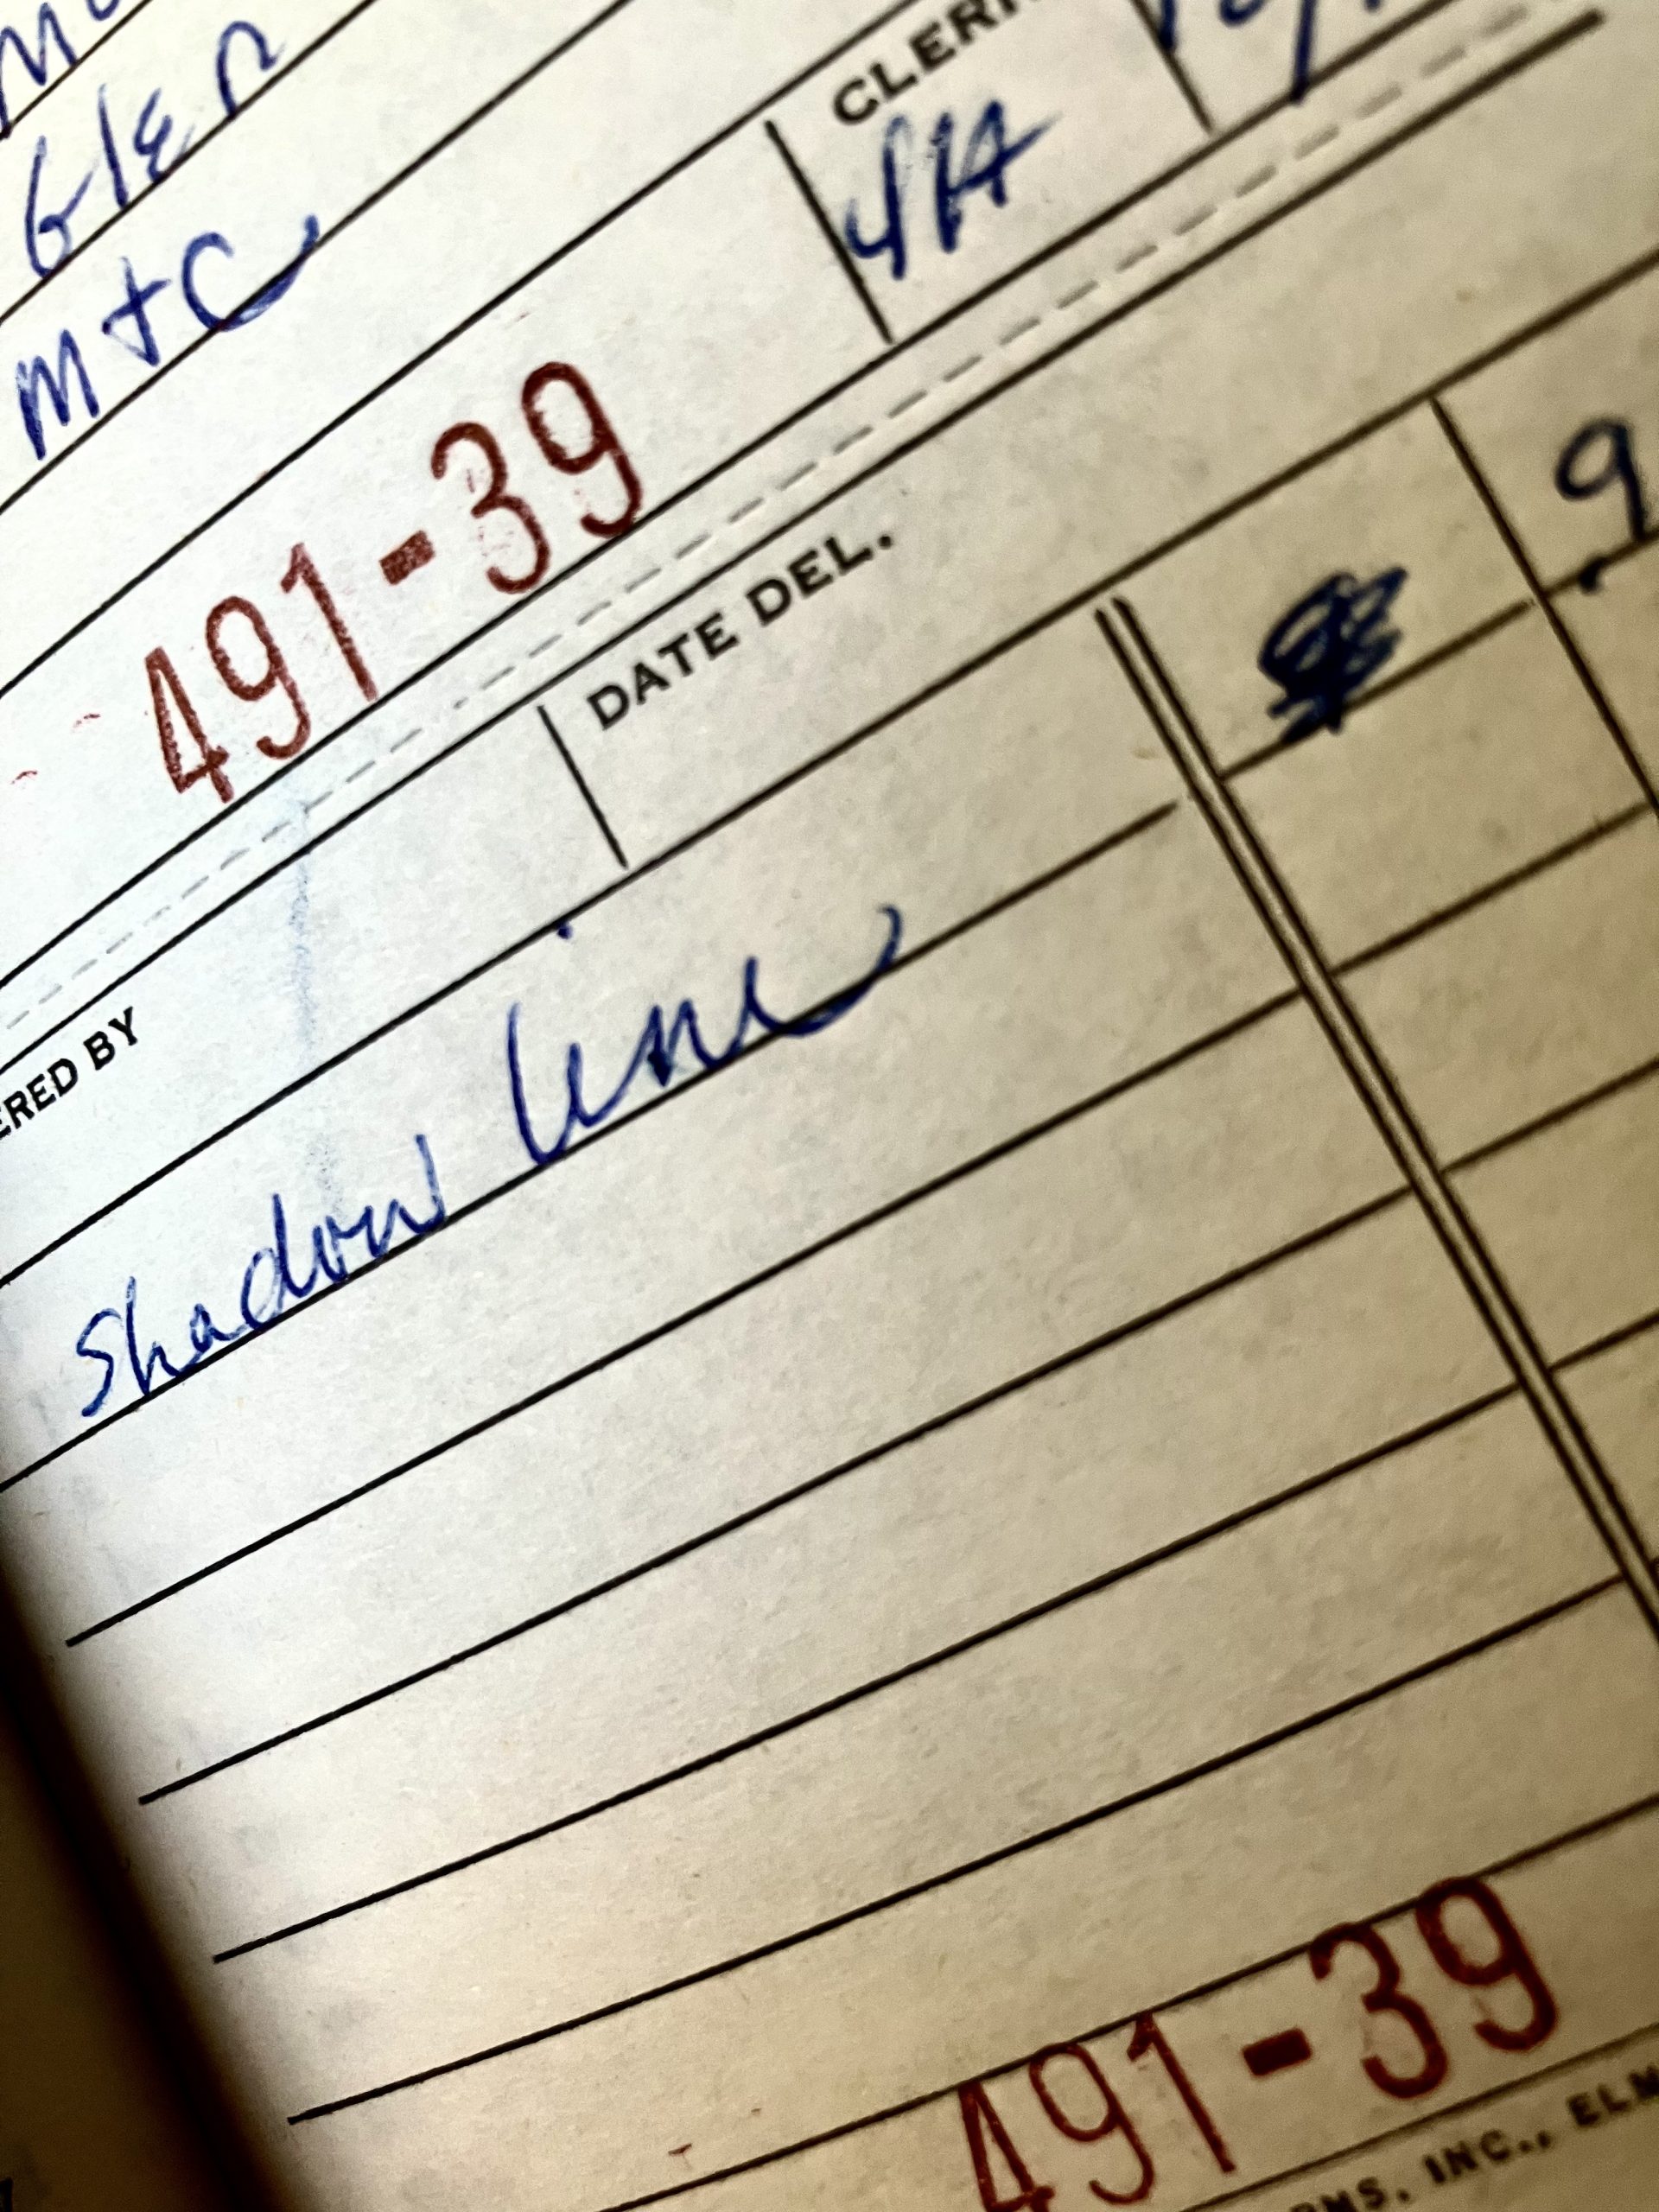 CLERK
M+C
491-39
DATE DEL.
9
ERED BY
Shadow line
491-39
RMS, INC., ELM